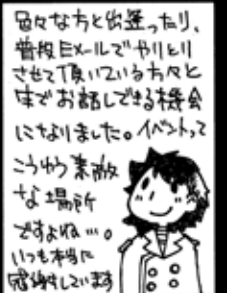 色々な方と出逢ったり、
普段Eメールでやりとり
させて頂いている方々と
生でお話しできる機会
になりました。イベントって
こうゆう素敵
な場所
ですよね…。
いつも本当に
感謝しています